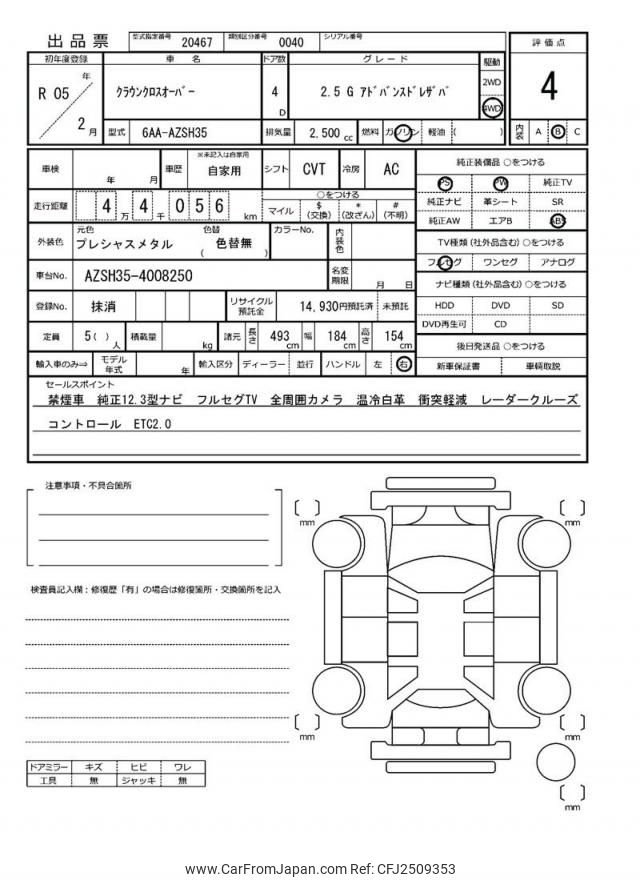 出品票 型式指定番号 20467 類別区分番号 0040 シリアル番号
初年度登録 車 名 ドア数 グレード 駆動 評価点
R 05 年 2 月 クラウンクロスオーバー 4 D 2.5 G アドバンスドレザパ 2WD 4WD 4
型式 6AA-AZSH35 排気量 2,500 cc 燃料 ガソリン 軽油 ( ) 内装 A B C
車検 年 月 車歴 ※未記入は自家用 自家用 シフト CVT 冷房 AC
走行距離 4 万 4 千 0 5 6 km ○をつける マイル $ (交換) * (改ざん) # (不明)
外装色 元色 プレシャスメタル 色替 ( 色替無 ) カラーNo. 内装色
車台No. AZSH35-4008250 名変期限 月 日
登録No. 抹消 リサイクル預託金 14,930円預託済 未預託
定員 5( ) 人 積載量 kg 諸元 長さ 493 cm 幅 184 cm 高さ 154 cm
輸入車のみ⇒ モデル年式 年 輸入区分 ディーラー 並行 ハンドル 左 右
純正装備品 ○をつける
PS PW 純正TV
純正ナビ 革シート SR
純正AW エアB ABS
TV種類 (社外品含む) ○をつける
フルセグ ワンセグ アナログ
ナビ種類 (社外品含む) ○をつける
HDD DVD SD
DVD再生可 CD
後日発送品 ○をつける
新車保証書 車輌取説
セールスポイント
禁煙車 純正12.3型ナビ フルセグTV 全周囲カメラ 温冷白革 衝突軽減 レーダークルーズ
コントロール ETC2.0
注意事項・不具合箇所
検査員記入欄：修復歴「有」の場合は修復箇所・交換箇所を記入
mm
mm
mm
mm
mm
ドアミラー キズ ヒビ ワレ
工具 無 ジャッキ 無
www.CarFromJapan.com Ref: CFJ2509353